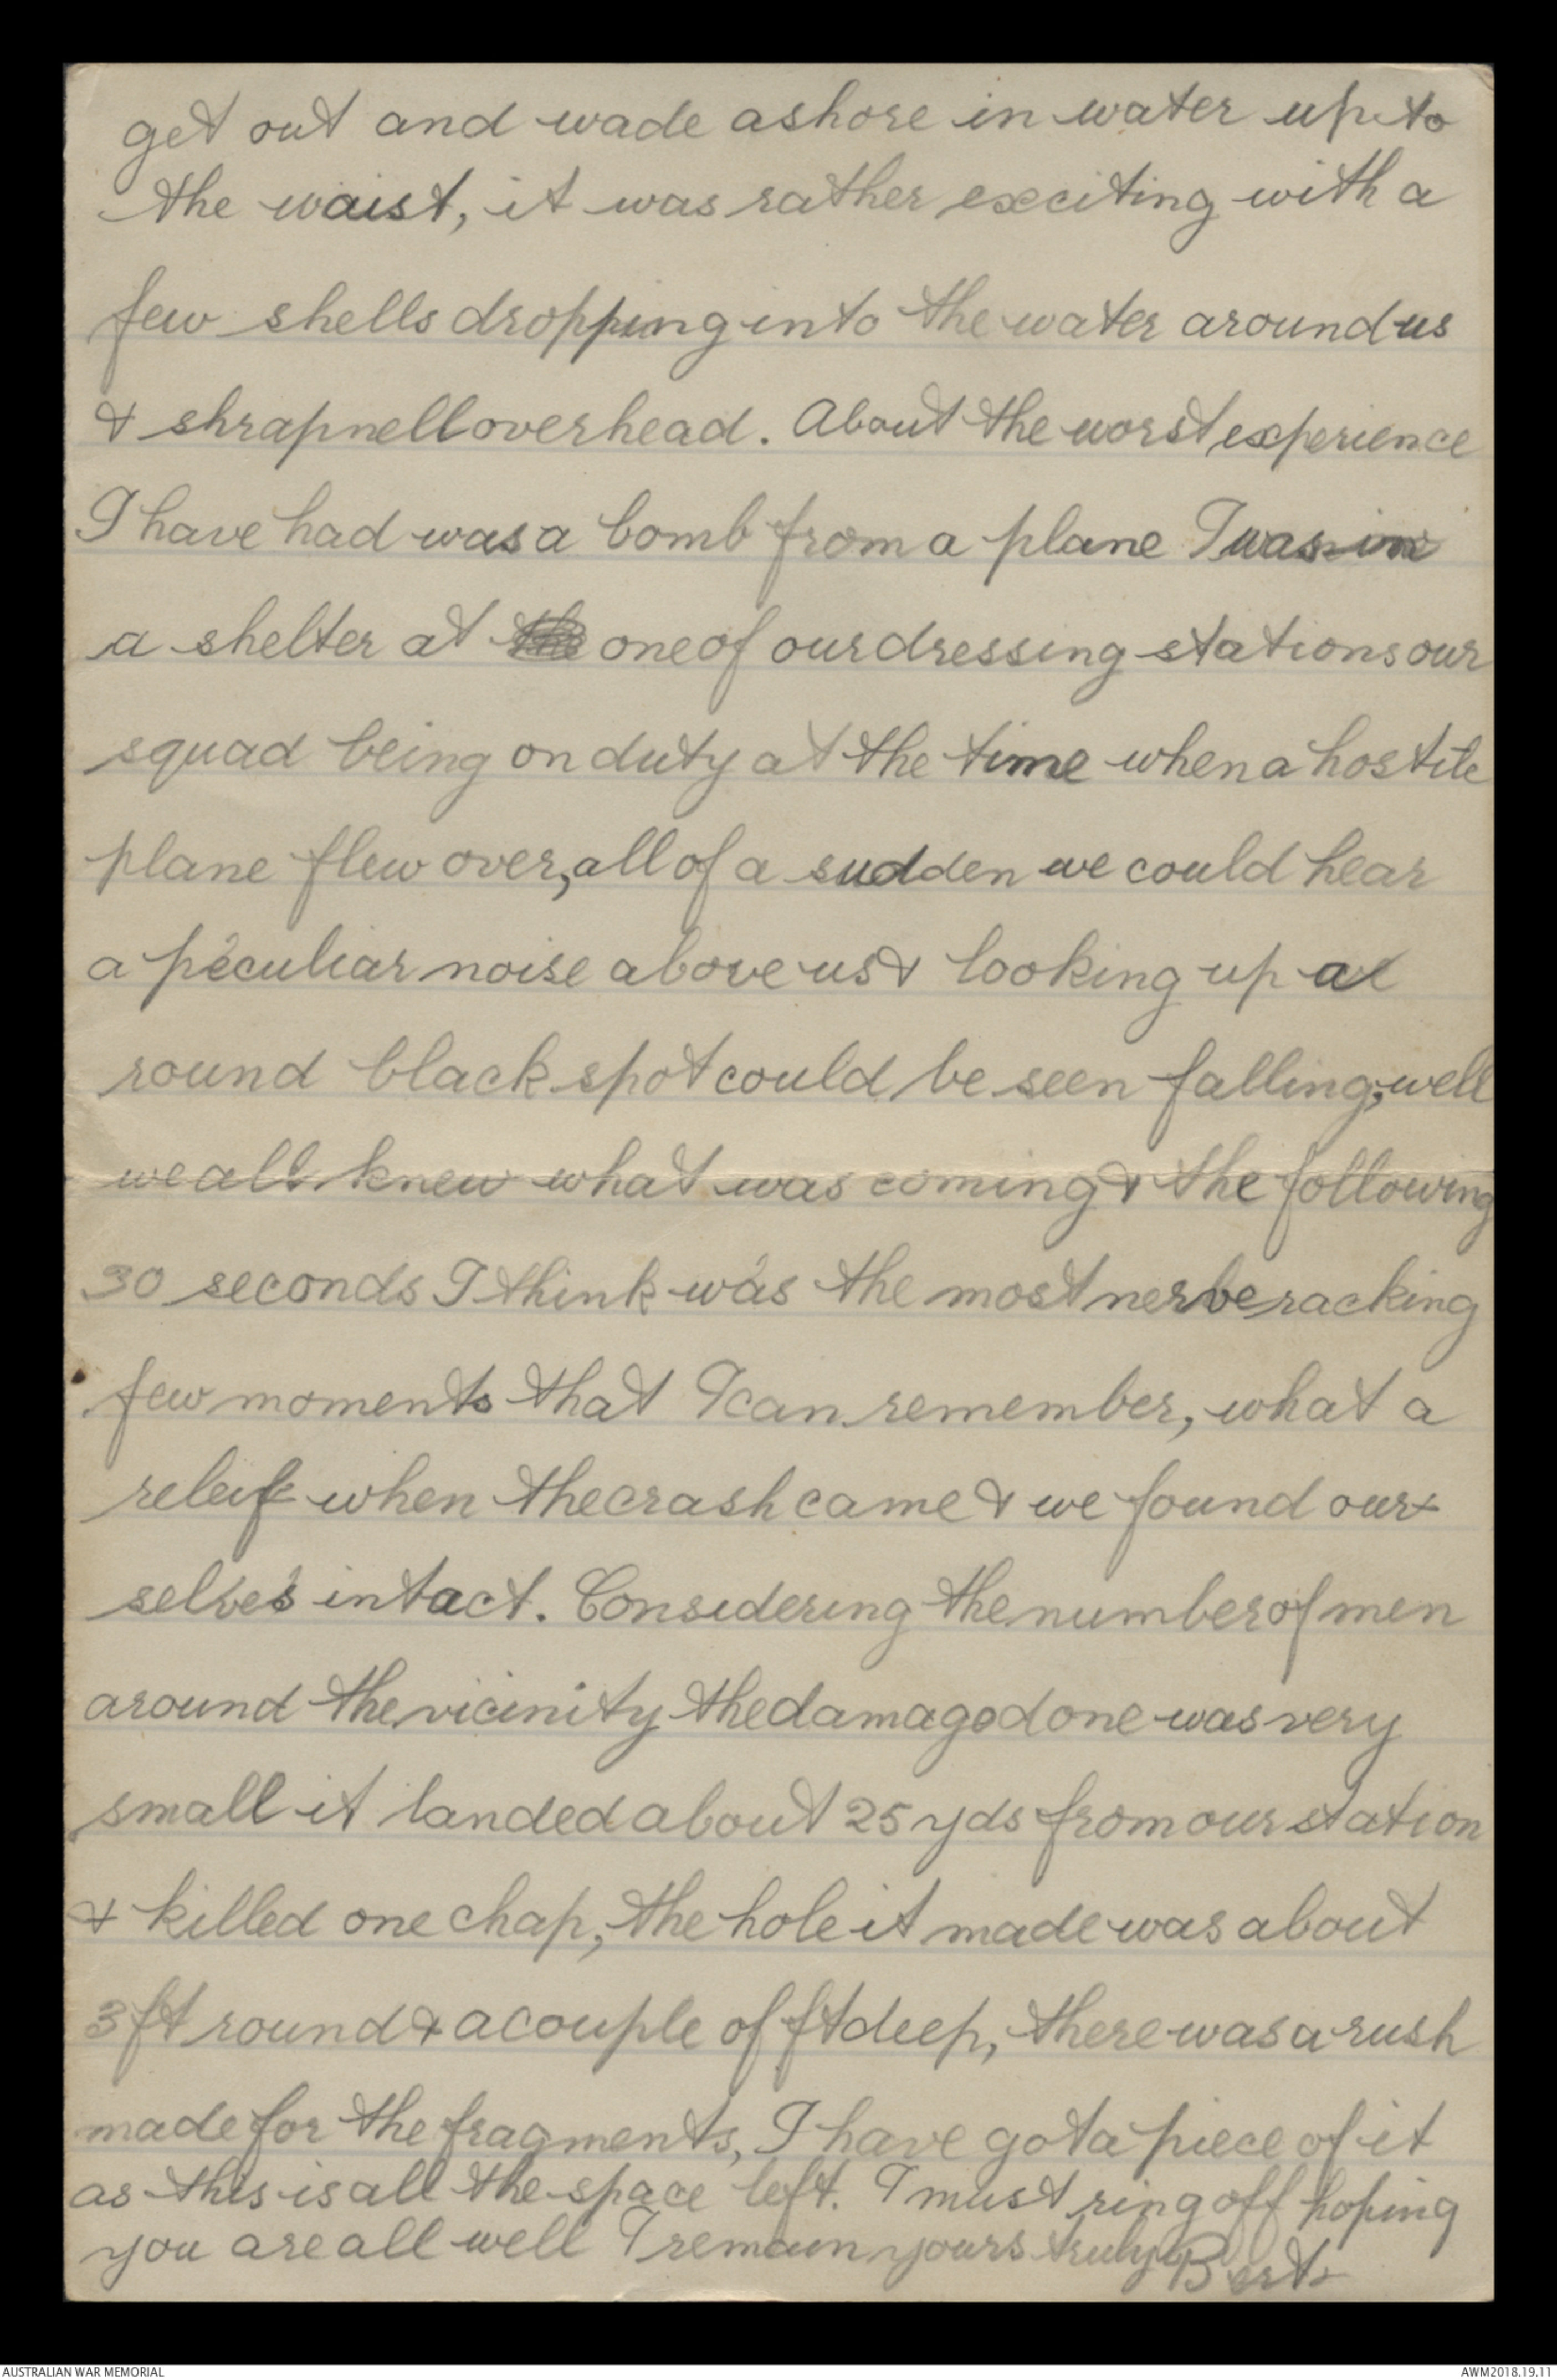 get out and wade ashore in water up to
the waist, it was rather exciting with a
few shells dropping into the water around us
& shrapnell overhead. About the worst experience
I have had was a bomb from a plane I was in
a shelter at the one of our dressing stations our
squad being on duty at the time when a hostile
plane flew over, all of a sudden we could hear
a peculiar noise above us & looking up a
round black spot could be seen falling, well
we all knew what was coming & the following
30 seconds I think was the most nerve racking
few moments that I can remember, what a
releif when the crash came & we found our-
selves intact. Considering the number of men
around the vicinity the damage done was very
small it landed about 25 yds from our station
& killed one chap, the hole it made was about
3 ft round & a couple of ft deep, there was a rush
made for the fragments, I have got a piece of it
as this is all the space left. I must ring off hoping
you are all well I remain yours truly Bert
AUSTRALIAN WAR MEMORIAL
AWM2018.19.11